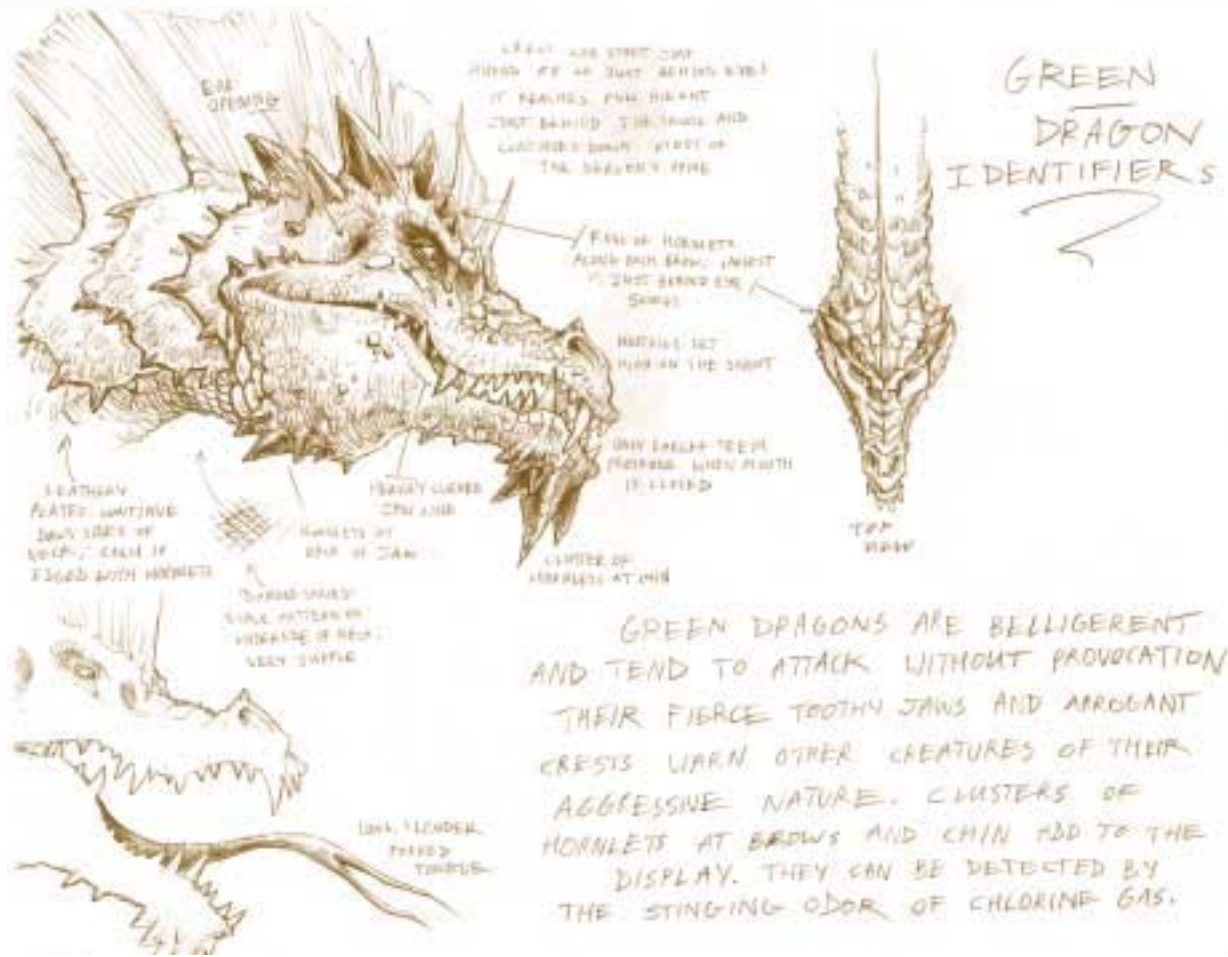 GREEN
DRAGON
IDENTIFIERS
EAR
OPENING
CREST CAN START JUST
AHEAD OF OR JUST BEHIND EYES
IT REACHES FULL HEIGHT
JUST BEHIND THE SKULL AND
CONTINUES DOWN
THE DRAGON'S SPINE
ROW OF HORNLETS
ALONG EACH BROW, LARGEST
IS JUST BEHIND EYE
NOSTRILS SET
HIGH ON THE SNOUT
ONLY LARGER TEETH
PROTRUDE WHEN MOUTH
IS CLOSED
TOP
VIEW
LEATHERY
PLATES CONTINUE
DOWN SIDES OF
NECK, EACH IS
EDGED WITH HORNLETS
HEAVY CURVED
JAW LINE
HORNLETS AT
BACK OF JAW
CLUSTER OF
HORNLETS AT CHIN
DIAMOND SHAPED
SCALE PATTERN ON
UNDERSIDE OF NECK,
VERY SUPPLE
LONG, SLENDER
FORKED
TONGUE
GREEN DRAGONS ARE BELLIGERENT
AND TEND TO ATTACK WITHOUT PROVOCATION
THEIR FIERCE TOOTHY JAWS AND ARROGANT
CRESTS WARN OTHER CREATURES OF THEIR
AGGRESSIVE NATURE. CLUSTERS OF
HORNLETS AT BROWS AND CHIN ADD TO THE
DISPLAY. THEY CAN BE DETECTED BY
THE STINGING ODOR OF CHLORINE GAS.